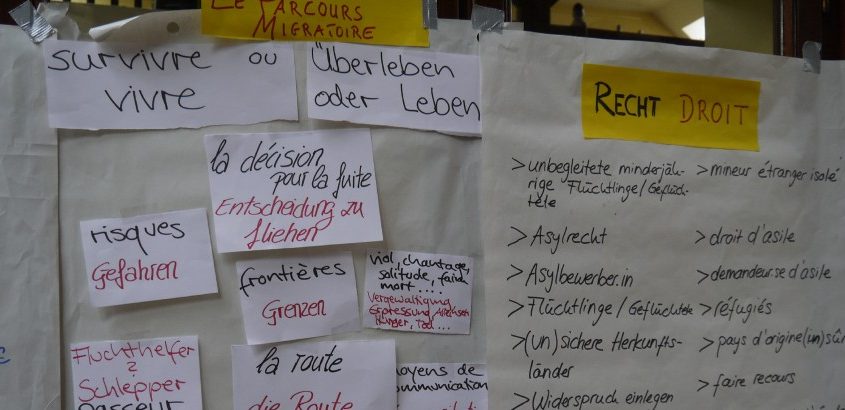 Le Parcours
Migratoire
survivre ou
vivre
Überleben
oder Leben
la décision
pour la fuite
Entscheidung zu
fliehen
risques
Gefahren
frontières
Grenzen
viol, chantage,
solitude, faim
mort ....
Vergewaltigung
Erpressung
Hunger, Tod ...
Fluchthelfer
Schlepper
passeur
la route
die Route
moyens de
communication
RECHT DROIT
> unbegleitete minderjäh-
rige Flüchtlinge/Geflüch-
tete
> mineur étranger isolé
> Asylrecht
> droit d'asile
> Asylbewerber.in
> demandeur.se d'asile
> Flüchtlinge/Geflüchtete
> réfugiés
> (un)sichere Herkunfts-
länder
> pays d'origine (un)sûr
> Widerspruch einlegen
> faire recours